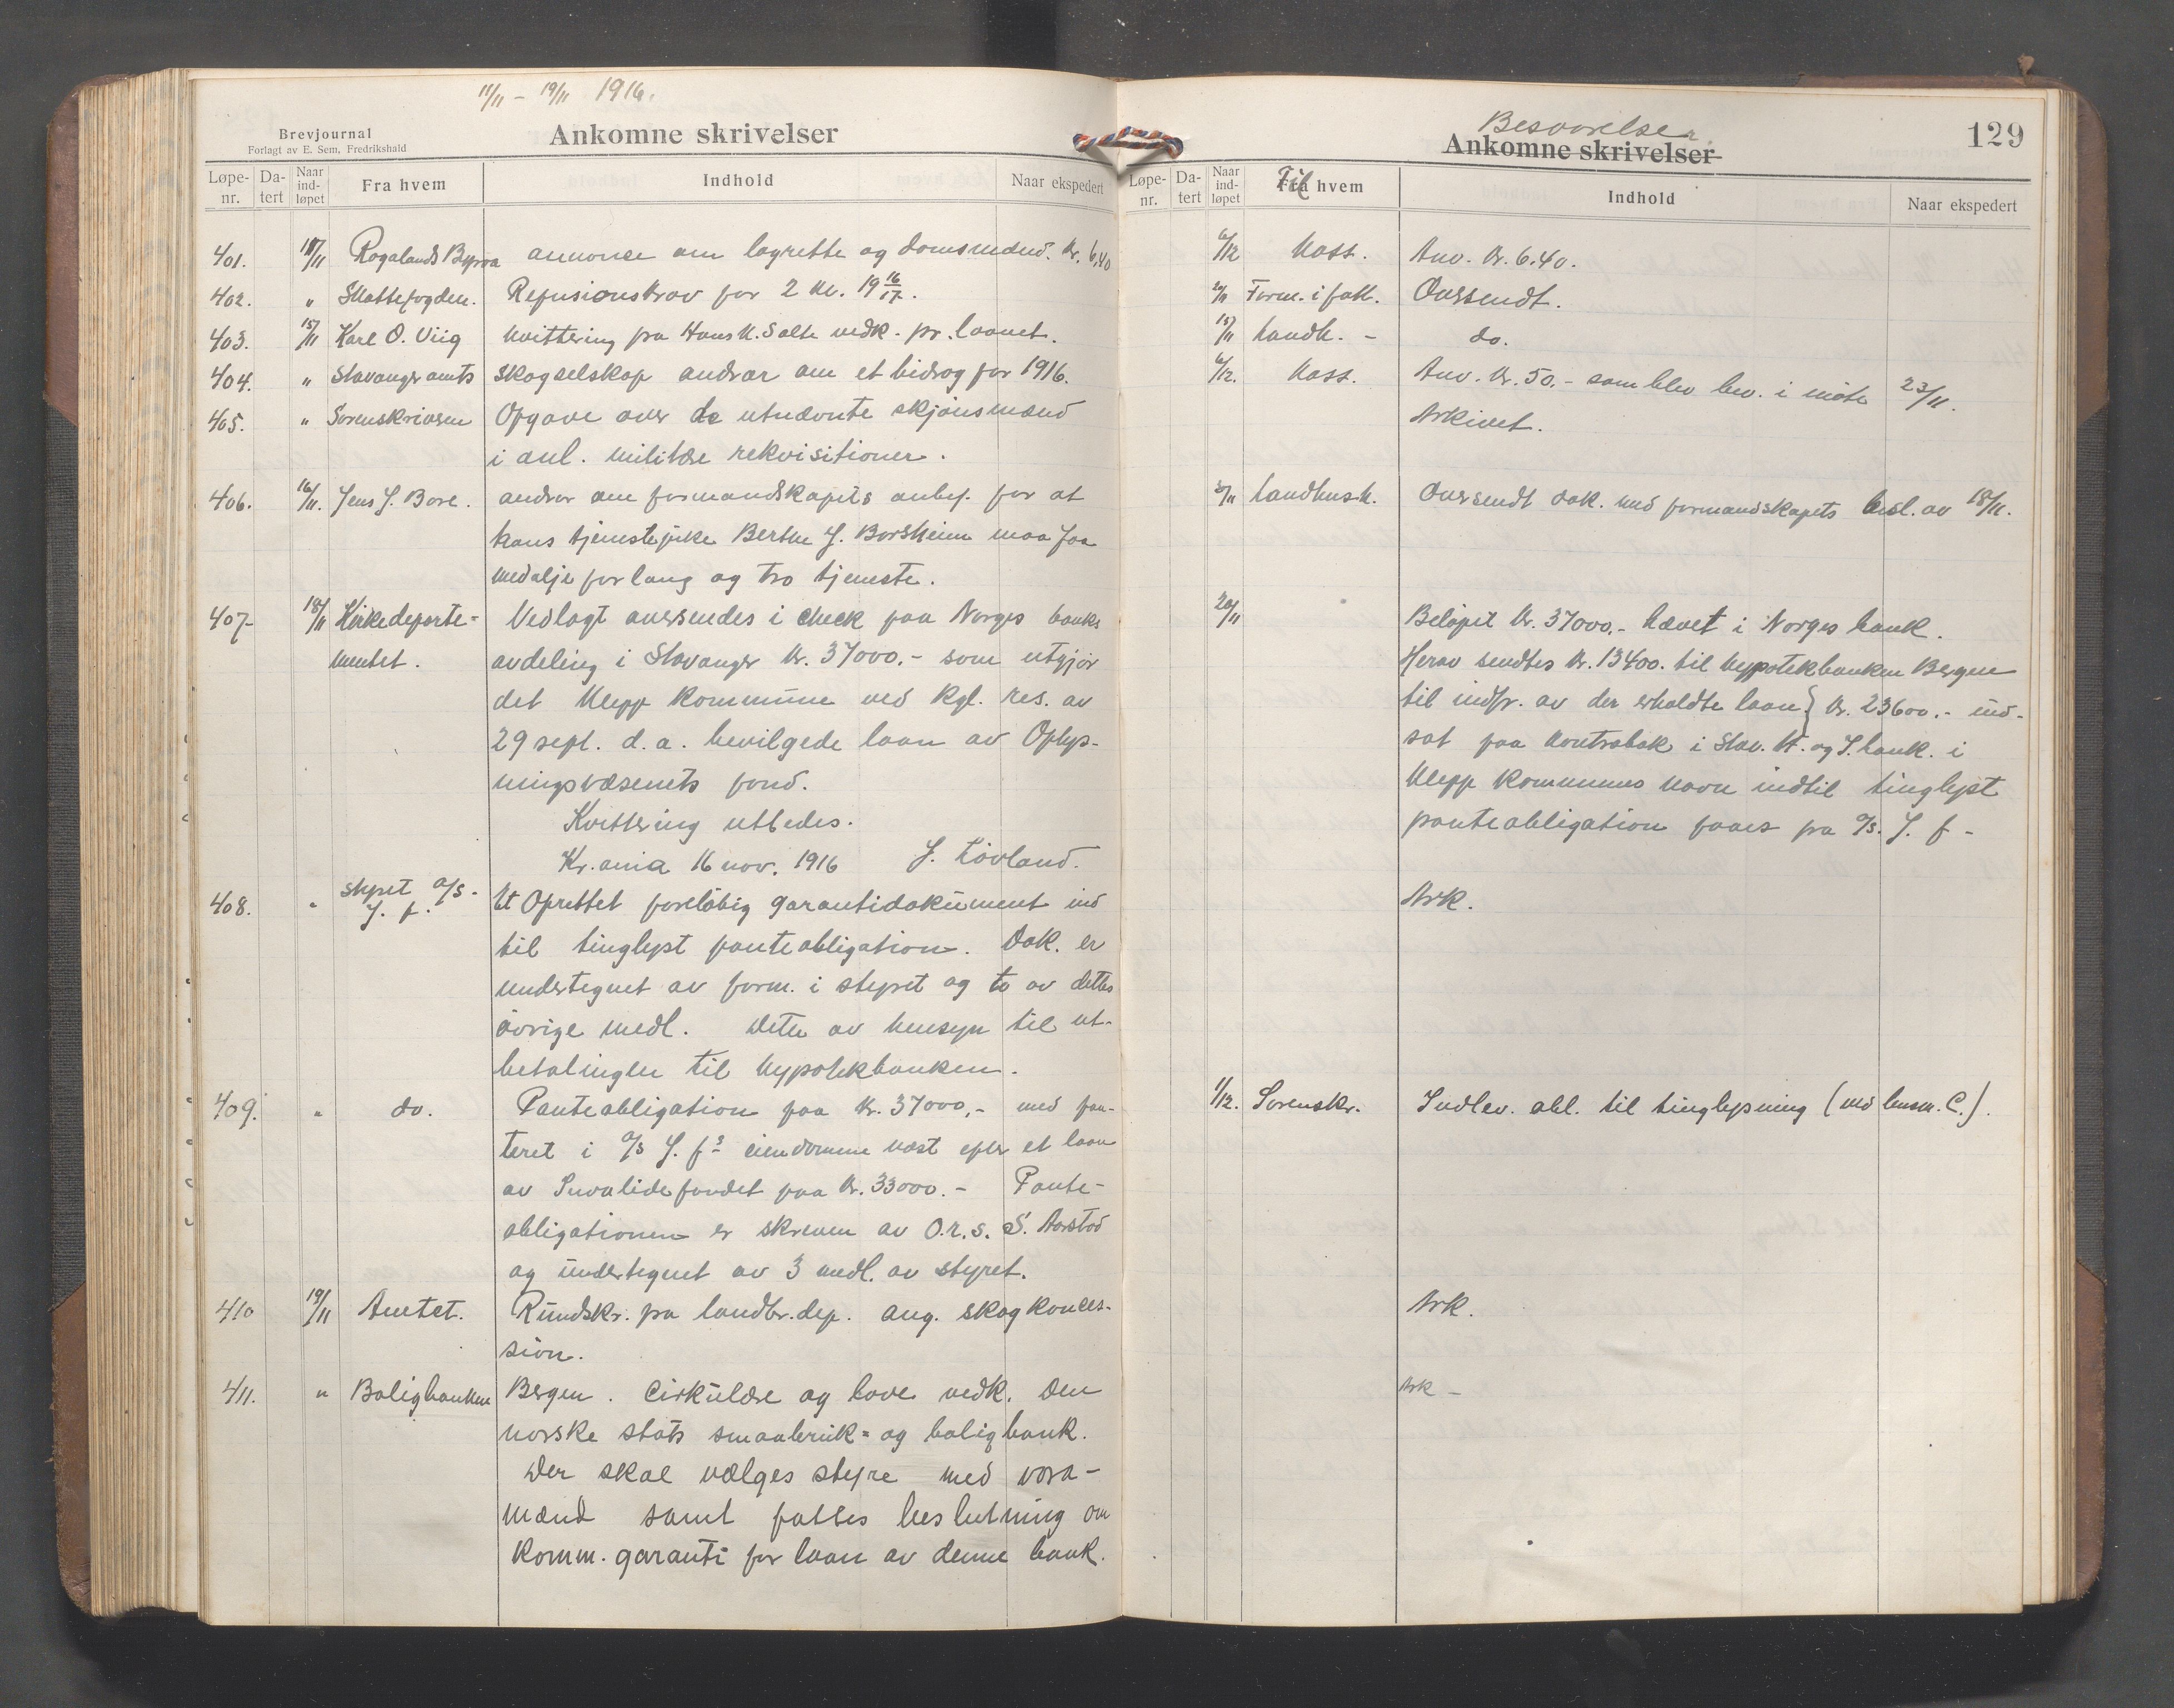 11/11 – 19/11 1916.
Brevjournal
Forlagt av E. Sem, Fredrikshald
Ankomne skrivelser
Løpe-nr. Da-tert Naar ind-løpet Fra hvem Indhold Naar ekspedert
401. 11/11 Rogalands Byraa annonse om lagrette og domsmænd. Kr. 6,40
402. " Skattefogden. Refusionskrav for 2 kv. 19 16/17.
403. 15/11 Karl O. Viig Kvittering fra Hans K. Salte vedk. pr. laanet.
404. " Stavanger amts skogselskap andrar om et bidrag for 1916.
405. " Sorenskriveren Opgave over de utnævnte skjønsmænd
i anl. militære rekvisitioner.
406. 16/11. Jens J. Bore. andrar om formandskapets anbef. for at
hans tjenestepike Berthe J. Borsheim maa faa
medalje for lang og tro tjeneste.
407 18/11 Kirkedeparte= Vedlagt oversendes i check paa Norges banks
mentet. avdeling i Stavanger kr. 37000.- som utgjør
det Klepp kommune ved kgl. res. av
29 sept. d.a. bevilgede laan av Oplys-
ningsvæsenets fond.
Kvittering utbedes.
Kr.ania 16 nov. 1916 J. Løvland.
408. " styret a/s. J. f. Et Oprettet foreløbig garantidokument ind
til tinglyst panteobligation. Dok. er
undertegnet av form. i styret og to av dettes
øvrige medl. Dette av hensyn til ut-
betalingen til Hypotekbanken.
409. " do. Panteobligation paa kr. 37000,- med pan-
teret i a/s J. f. eiendomme næst efter et laan
av Invalidefondet paa kr. 33000.- Pante-
obligationen er skreven av O.r.s. S. Aarstad
og undertegnet av 3 medl. av styret.
410 19/11 Amtet. Rundskr. fra landbr.dep. ang. skogkonces-
sion.
411. " Boligbanken Bergen. Cirkulære og love vedk. Den
norske stats smaabruk= og boligbank.
Der skal vælges styre med vara-
mænd samt fattes beslutning om
komm. garanti for laan av denne bank.
Besvarelser
Ankomne skrivelser
129
Løpe-nr. Da-tert Naar ind-løpet Til Fra hvem Indhold Naar ekspedert
6/12 Kass. Anv. Kr. 6.40.
Form. i fatt. Oversendt.
15/11 Landh. - do.
6/12. Kass. Anv. Kr. 50.- som blev bev. i møte 23/11.
Arkivet.
Landhush. Oversendt dok. med formandskapets besl. av 18/11.
20/11 Beløpet kr. 37000.- hævet i Norges bank.
Herav sendtes kr. 13400. til Hypotekbanken Bergen
til indfr. av der erholdte laan } kr. 23600.- ind-
sat paa kontrabok i Stav. H. og I. bank. i
Klepp kommunes navn indtil tinglyst
panteobligation faaes fra a/s. J. f -
Ark.
1/12. Sorenskr. Indlev. obl. til tinglysning (ved lensm. C.).
Ark.
Ark -